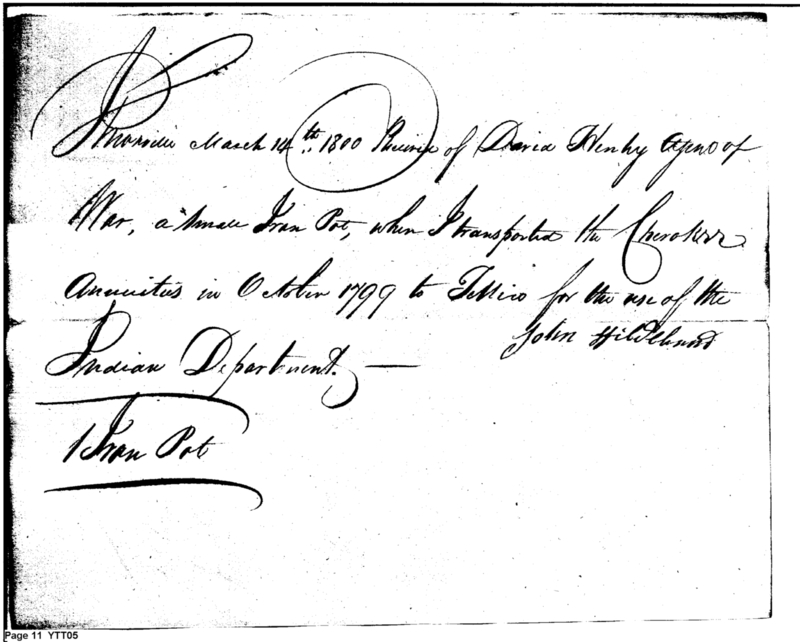 Knoxville March 14th 1800 Received of David Henly Agent of
War, a small Iron Pot, when I transported the Cherokee
Annuities in October 1799 to Tellico for the use of the
John Hildebrand
Indian Department. —
1 Iron Pot
Page 11 YTT05